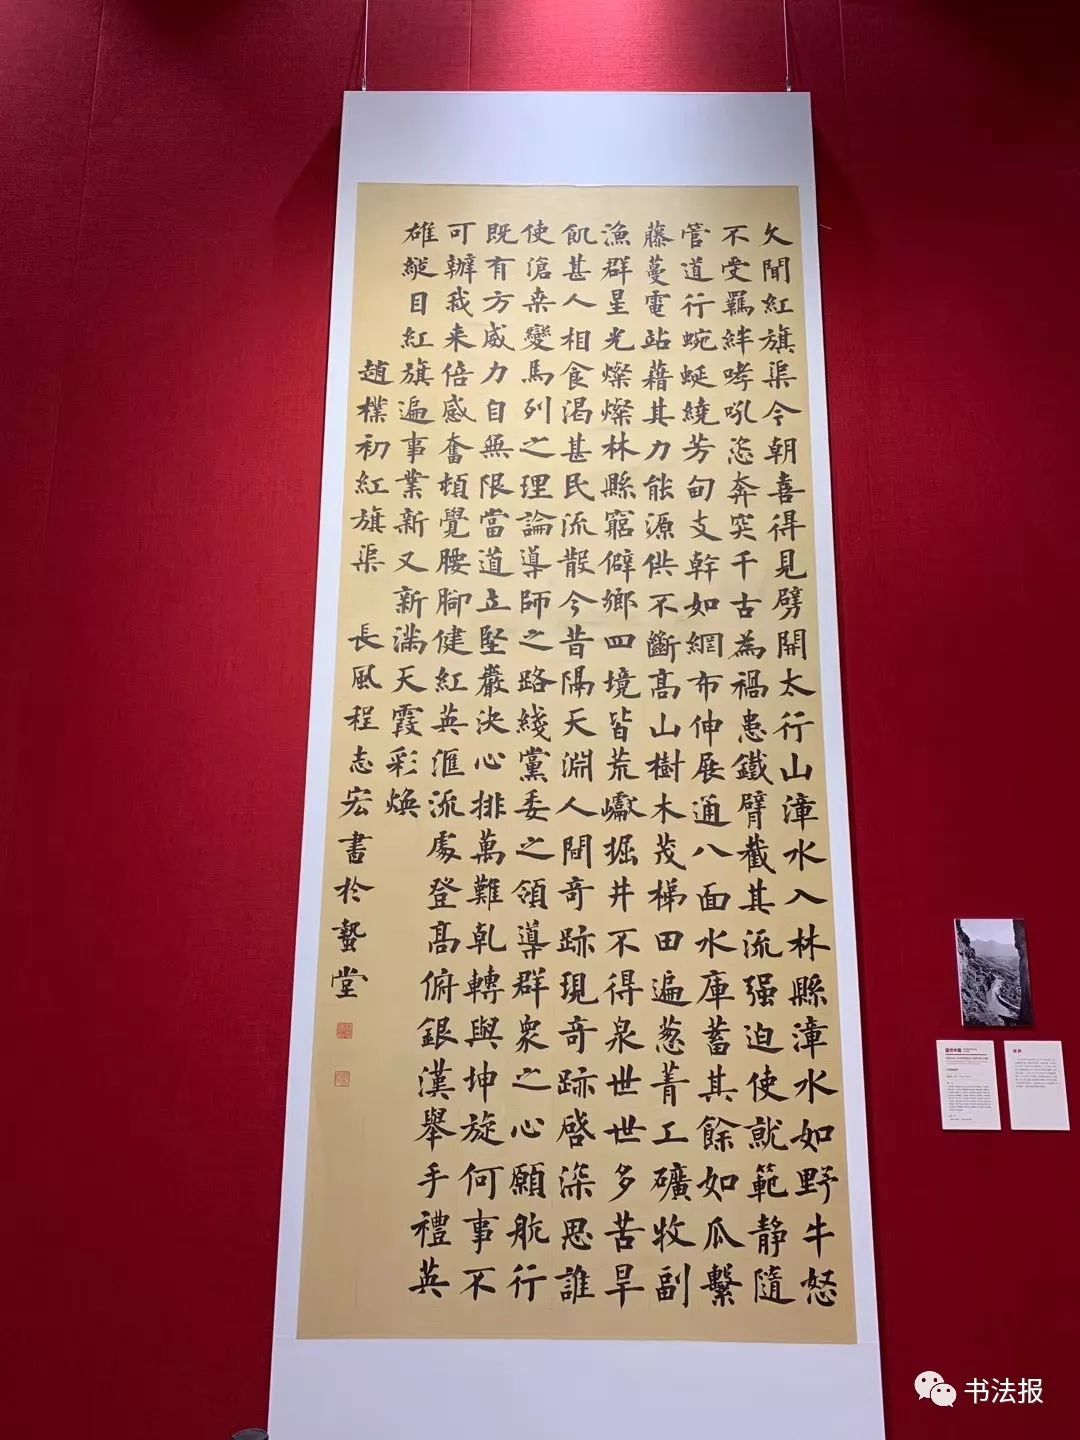 久聞紅旗渠今朝喜得見劈開太行山漳水入林縣漳水如野牛怒
不受羈絆哮吼恣奔突千古為禍患鐵臂截其流强迫使就範静隨
管道行蜿蜒繞芳甸支幹如網布伸展通八面水庫蓄其餘如瓜繫
藤蔓電站藉其力能源供不斷高山樹木茂梯田遍葱菁工礦牧副
漁群星光燦燦林縣窮僻鄉四境皆荒巘掘井不得泉世世多苦旱
飢甚人相食渴甚民流散今昔隔天淵人間奇跡現奇跡啓深思誰
使滄桑變馬列之理論導師之路綫黨委之領導群衆之心願航行
既有方威力自無限當道立堅巖決心排萬難乹轉與坤旋何事不
可辦我来倍感奮頓覺腰腳健紅英匯流處登高俯銀漢舉手禮英
雄縱目紅旗遍事業新又新滿天霞彩焕
趙樸初紅旗渠 長風程志宏書於蟄堂
书法报